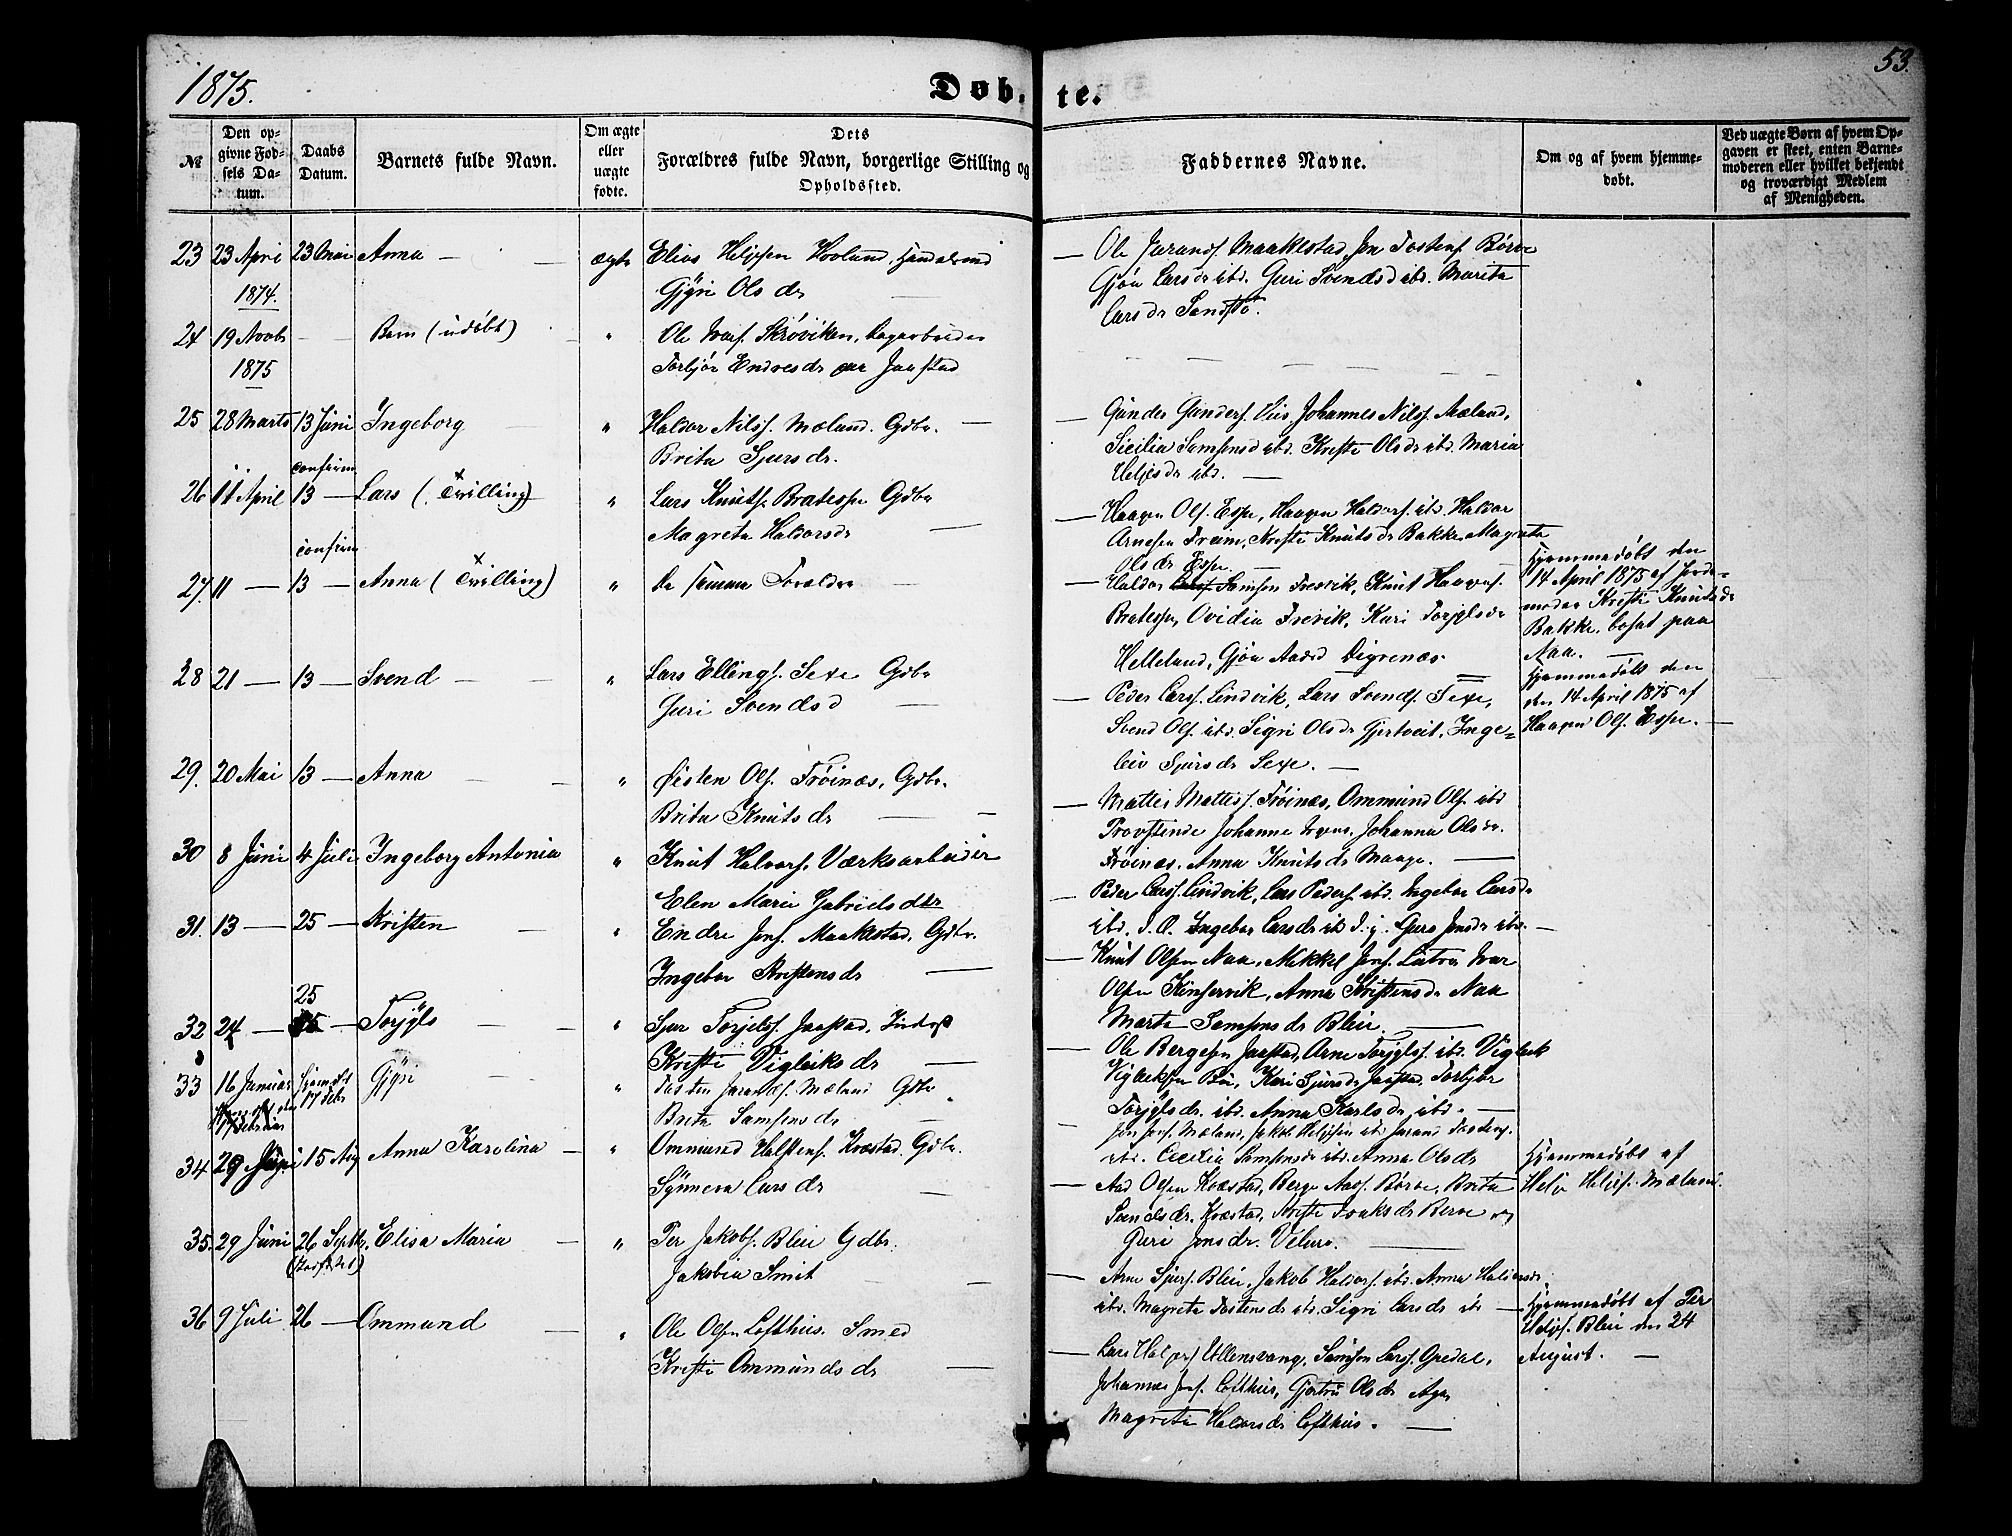 1875.
Døb-te.
53.
№
Den op-
givne Fød-
sels Da-
tum.
Daabs
Datum.
Barnets fulde Navn.
Om ægte
eller
uægte
fødte.
Dets
Forældres fulde Navn, borgerlige Stilling og
Opholdssted.
Faddernes Navne.
Om og af hvem hjemme-
døbt.
Ved uægte Børn af hvem Op-
gaven er skeet, enten Barne-
moderen eller hvilket bekjendt
og troværdigt Medlem
af Menigheden.
23 23 April 23 Mai Anna — ægte Elias Heljesen Hovland,
1874. Gjyri Olsdr
— Ole Jarands. Maakestad, Jon Tostens. Børve
Gjøa Larsdr ibd. Guri Svendsd ibd. Marita
Larsdr Sandstø.
24 19 Novb — — Barn (udøbt) — " Ole Ivars. Skrøviken, Dagarbeider
1875 Torbjør Endresdr paa Jaastad
25 28 Marts 13 Juni Ingeborg — " Haldor Nilss. Mæland. Gdbr. —
Brita Sjursdr.
— Gunder Gunders. Viis, Johannes Nilss. Mæland,
Sicilia Samsonsd ibd. Kristi Olsdr ibd. Maria
Heljesdr ibd. —
confirm
26 11 April 13 — Lars (Tvilling) " Lars Knuts. Bratespe Gdbr
Magreta Haldorsdr —
— Haagen Ols. Espe, Haagen Haldors. ibd. Haldor
Arnesen Freim, Kristi Knutsdr Bakke, Magreta
Olsdr Espe. —
confirm
27. 11 — 13 — Anna (Tvilling) " De samme Forældre —
— Haldor Samson Fresvik, Knut Haagens.
Bratespe, Ovidia Fresvik, Kari Torjylsdr
Helleland, Gjøa Aadsd Digrenæs
Hjemmedøbt den
14 April 1875 af Jorde-
moder Kristi Knutsdr
Bakke, bosat paa
Naa. —
28 21 — 13 — Svend — — " Lars Ellings. Sexe Gdbr
Guri Svendsd —
— Peder Larss. Lindvik, Lars Svends. Sexe,
Svend Ols. ibd. Sigri Olsdr Gjertveit, Inge-
leiv Sjursdr Sexe. —
Hjemmedøbt den
den 14 April 1875 af
Haagen Ols. Espe. —
29. 20 Mai 13 — Anna — — " Øisten Ols. Trøinæs, Gdbr.
Brita Knutsdr —
— Mattis Mattiss. Trøinæs, Ommund Ols. ibd
Provstinde Johanne Johanna Olsdr.
Trøinæs, Anna Knutsdr Maage. —
30 8 Juni 4 Juli Ingeborg Antonia " Knut Halvors. Værksarbeider
Elen Marie Gabrielsdtr
— Peder Larss. Lindvik, Lars Peders. ibd. Ingebor Larsdr
ibd. Ingebor Larsdr ibd Guro Jonsdr ibd. —
31. 13 — 25 — Kristen — " Endre Jons. Maakestad. Gdbr.
Ingebor Kristensdr —
— Knut Olsen Naa, Mikkel Jons. Lutro Ivar
Olsen Kinservik, Anna Kristensdr Naa
Marta Samsonsdr Bleie. —
25
32 24 — Torjyls — — " Sjur Torjels. Jaastad, Inderst
Kristi Vigleiksdr —
— Ole Bergesen Jaastad, Arne Torjyls. ibd. Vigleik
Vigleiksen Bu, Kari Sjursdr Jaastad, Torbjør
Torjylsdr. ibd. Anna Karlsdr, ibd. —
33 16 Januar Hjemdøbt 17 Febr Gjyri — " Tosten Jarands. Mæland Gdbr
Brita Samsonsdr —
— Jon Jons. Mæland, Jakob Heljesen ibd Jarand Tostens.
ibd. Cecilia Samsonsdr ibd. Anna Olsdr
Hjemmedøbt af
Helje Heljes. Mæland.
34 29 15 Aug Anna Karolina — " Ommund Halstens. Kvæstad. Gdbr.
Synneva Larsdr —
— Aad Olsen Kvæstad, Berge Aads. Børve, Brita
Svendsdr. Kvæstad, Kristi Isaksdr Berve og
Guri Jonsdr. Velure. —
35. 29 Juni 26 Septbr. Elisa Maria — " Per Jakobs. Bleie Gdbr.
(stadfæstet)
Jakobia Smit —
— Arne Sjurs. Bleie, Jakob Haldors. ibd. Anna Haldorsdr
ibd. Magreta Tostensdr ibd. Sigri Larsdr ibd —
Hjemmedøbt af Per
Heljes. Bleie den 24
August. —
36 9 Juli 26 — Ommund — " Ole Olsen Lofthus. Smed
Kristi Ommundsdr —
— Lars Ullensvang, Samson Larss. Opedal,
Johannes Jons. Lofthus, Gjertru Olsdr Aga,
Magreta Haldorsdr Lofthus. —